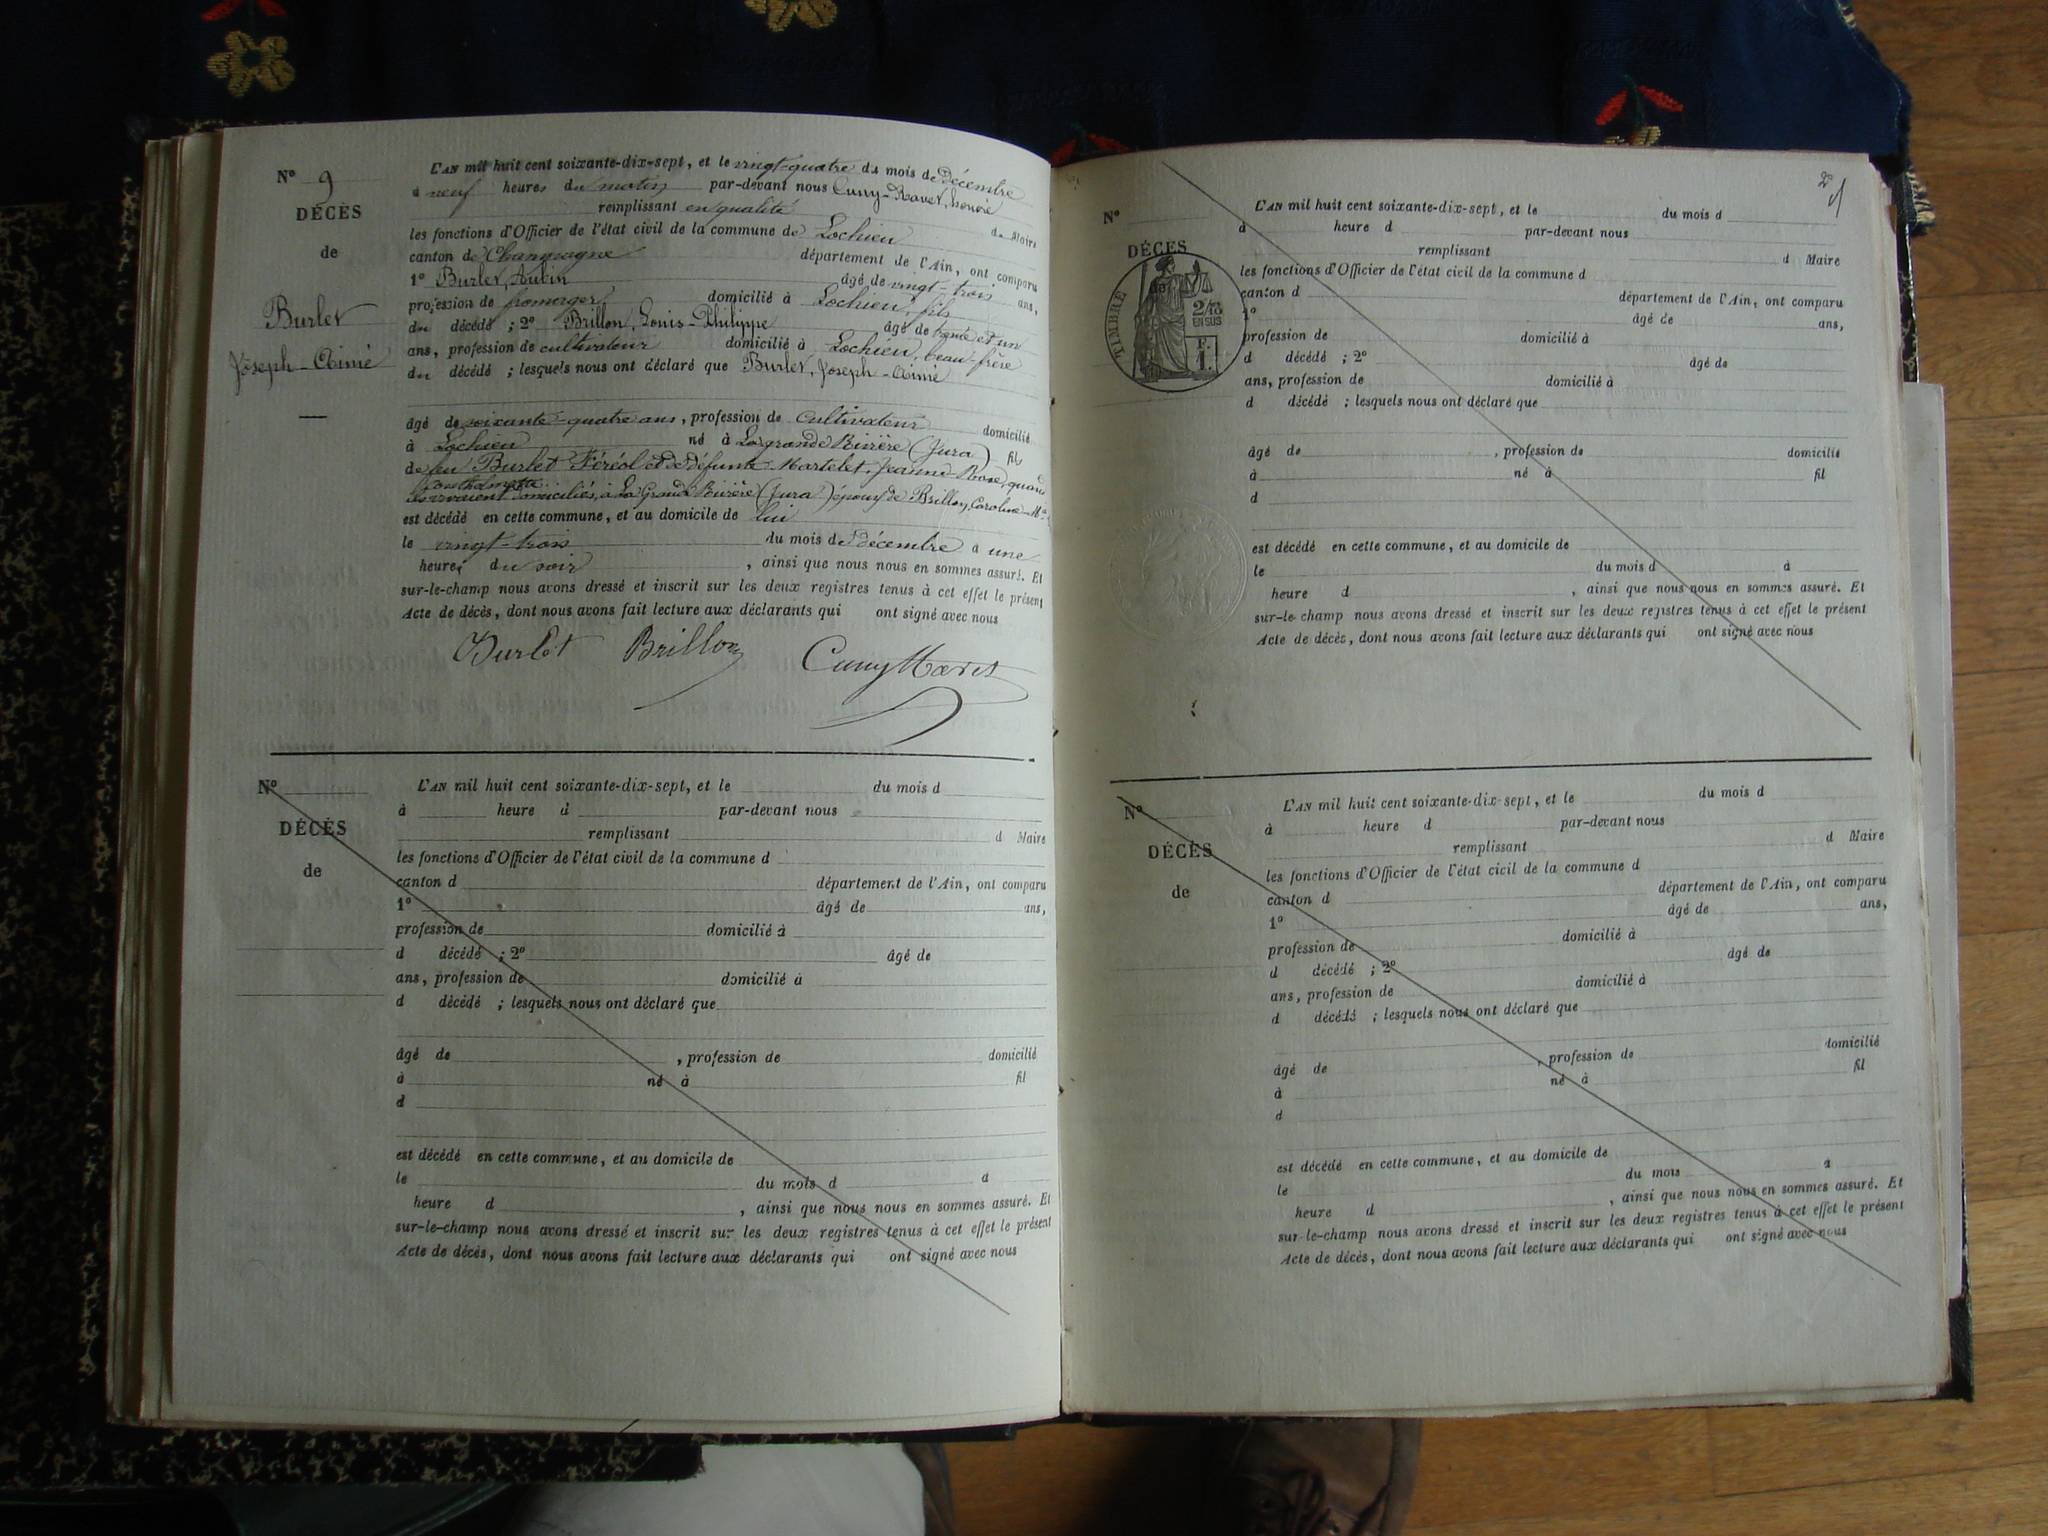 N° 9
DÉCÈS
de
Burlet
Joseph-Aimé
L'AN mil huit cent soixante-dix-sept, et le vingt-quatre du mois de décembre
à neuf heures du matin par-devant nous Cuny-Ravet, honoré
remplissant en qualité de Maire
les fonctions d'Officier de l'état civil de la commune de Lochieu
canton de Champagne département de l'Ain, ont comparu
1° Burlet, Aubin âgé de vingt-trois ans,
profession de fromager domicilié à Lochieu, fils
du décédé ; 2° Brillon, Louis-Philippe âgé de trente et un
ans, profession de cultivateur domicilié à Lochieu, beau-frère
du décédé ; lesquels nous ont déclaré que Burlet, Joseph-Aimé
âgé de soixante-quatre ans, profession de cultivateur domicilié
à Lochieu né à La grande Rivière (Jura) fils
de feu Burlet Féréol et de défunte Martelet, Jeanne-Rose, quand
ils vivaient domiciliés, à La Grande Rivière (Jura) époux de Brillon, Caroline-Mie
est décédé en cette commune, et au domicile de lui
le vingt-trois du mois de décembre à une
heure, du soir, ainsi que nous nous en sommes assuré. Et
sur-le-champ nous avons dressé et inscrit sur les deux registres tenus à cet effet le présent
Acte de décès, dont nous avons fait lecture aux déclarants qui ont signé avec nous
Burlet Brillon Cuny Ravet
N°
DÉCÈS
de
L'AN mil huit cent soixante-dix-sept, et le du mois d
à heure d par-devant nous
remplissant d Maire
les fonctions d'Officier de l'état civil de la commune d
canton d département de l'Ain, ont comparu
1° âgé de ans,
profession de domicilié à
d décédé ; 2° âgé de
ans, profession de domicilié à
d décédé ; lesquels nous ont déclaré que
âgé de , profession de domicilié
à né à fil
d
est décédé en cette commune, et au domicile de
le du mois d à
heure d , ainsi que nous nous en sommes assuré. Et
sur-le-champ nous avons dressé et inscrit sur les deux registres tenus à cet effet le présent
Acte de décès, dont nous avons fait lecture aux déclarants qui ont signé avec nous
N°
DÉCÈS
de
TIMBRE
2/10
EN SUS
F.
1.
L'AN mil huit cent soixante-dix-sept, et le du mois d
à heure d par-devant nous
remplissant d Maire
les fonctions d'Officier de l'état civil de la commune d
canton d département de l'Ain, ont comparu
1° âgé de ans,
profession de domicilié à
d décédé ; 2° âgé de
ans, profession de domicilié à
d décédé ; lesquels nous ont déclaré que
âgé de , profession de domicilié
à né à fil
d
est décédé en cette commune, et au domicile de
le du mois d à
heure d , ainsi que nous nous en sommes assuré. Et
sur-le-champ nous avons dressé et inscrit sur les deux registres tenus à cet effet le présent
Acte de décès, dont nous avons fait lecture aux déclarants qui ont signé avec nous
N°
DÉCÈS
de
L'AN mil huit cent soixante-dix-sept, et le du mois d
à heure d par-devant nous
remplissant d Maire
les fonctions d'Officier de l'état civil de la commune d
canton d département de l'Ain, ont comparu
1° âgé de ans,
profession de domicilié à
d décédé ; 2° âgé de
ans, profession de domicilié à
d décédé ; lesquels nous ont déclaré que
âgé de , profession de domicilié
à né à fil
d
est décédé en cette commune, et au domicile de
le du mois à
heure d , ainsi que nous nous en sommes assuré. Et
sur-le-champ nous avons dressé et inscrit sur les deux registres tenus à cet effet le présent
Acte de décès, dont nous avons fait lecture aux déclarants qui ont signé avec nous